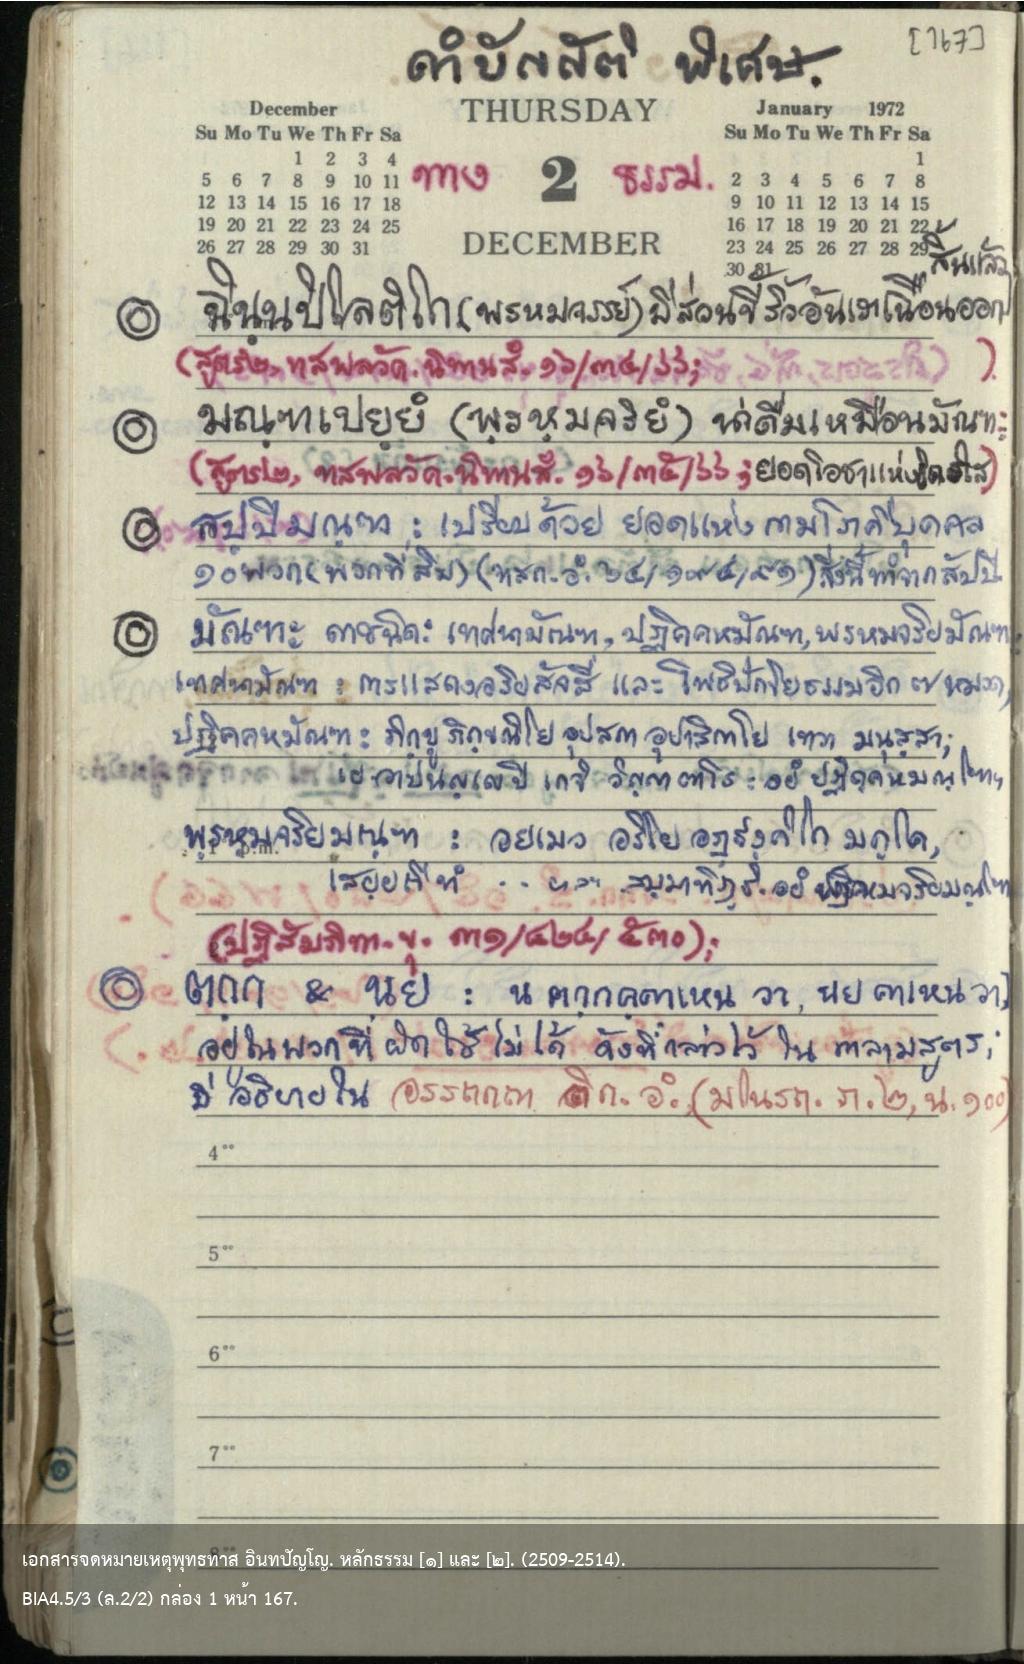 [167]
คำบัญญัติ พิเศษ.
December
Su Mo Tu We Th Fr Sa
1 2 3 4
5 6 7 8 9 10 11
12 13 14 15 16 17 18
19 20 21 22 23 24 25
26 27 28 29 30 31
THURSDAY
ทาง 2 ธรรม.
DECEMBER
January 1972
Su Mo Tu We Th Fr Sa
1
2 3 4 5 6 7 8
9 10 11 12 13 14 15
16 17 18 19 20 21 22
23 24 25 26 27 28 29
30 31
สิ้นแล้ว
ฉินฺนปิโลติโก (พรหมจรรย์) มีส่วนขี้ริ้วอันเฉือนออก
(สูตร๒, ทสพลวัค. นิทานสํ. ๑๖/๓๔/๖๖;
มณฺฑเปยฺยํ (พฺรหฺมจริยํ) น่าดื่มเหมือนมัณฑะ;
(สูตร๒, ทสพลวัค. นิทานสํ. ๑๖/๓๕/๖๖; ยอดโอชาแห่ง
สปฺปิมณฺฑ : เปรียบด้วย ยอดแห่ง กามโภคีบุคคล
๑๐พวก (พวกที่สิบ) (ทสก. อํ. ๒๔/๑๙๔/๙๑) สิ่งนี้ทำจากสัปปิ
มัณฑะ ๓ชนิด: เทศนามัณฑ, ปฏิคคหมัณฑ, พรหมจริยมัณฑ:
เทศนามัณฑ : การแสดงอริยสัจสี่ และ โพธิปักขิยธรรมอีก ๗ หมวด,
ปฏิคคหมัณฑ: ภิกฺขู ภิกฺขุนิโย อุปาสกา อุปาสิกาโย เทวา มนุสฺสา;
เย วาปนญฺเญปิ เกจิ วิญฺญาตาโร : อยํ ปฏิคฺคหมณฺโฑ,
พฺรหฺมจริยมณฺฑ : อยเมว อริโย อฏฺฐงฺคิโก มคฺโค,
เสยฺยถีทํ ... สมฺมาทิฏฺฐิ.
(ปฏิสัมภิทา. ขุ. ๓๑/๔๒๔/๕๓๐);
ตกฺก & นย : น ตกฺก เหตุ วา, นย เหตุ วา,
อยู่ในพวกที่ ผิดใช้ไม่ได้ ดังที่กล่าวไว้ ใน กาลามสูตร;
มีอธิบายใน อรรถกถา ติก. อํ. (มโนรถ. ภ.๒, น. ๑๐๐)
4⁰⁰
5⁰⁰
6⁰⁰
7⁰⁰
เอกสารจดหมายเหตุพุทธทาส อินทปัญโญ. หลักธรรม [๑] และ [๒]. (2509-2514).
BIA4.5/3 (ล.2/2) กล่อง 1 หน้า 167.